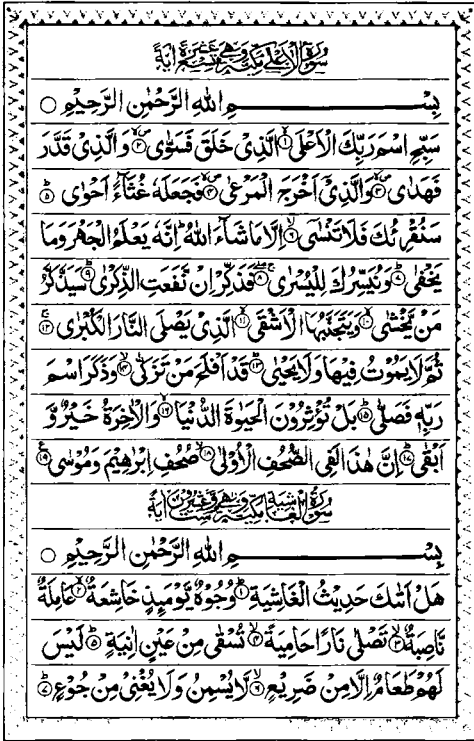 سُوْرَةُ الْاَعْلٰى مَكِّيَّةٌ وَّهِيَ تِسْعَ عَشْرَةَ اٰيَةً
بِسْمِ اللهِ الرَّحْمٰنِ الرَّحِيْمِ ○
سَبِّحِ اسْمَ رَبِّكَ الْاَعْلَى ۙ﴿١﴾ الَّذِيْ خَلَقَ فَسَوّٰى ۪ۙ﴿٢﴾ وَالَّذِيْ قَدَّرَ
فَهَدٰى ۪ۙ﴿٣﴾ وَالَّذِيْ اَخْرَجَ الْمَرْعٰى ۪ۙ﴿٤﴾ فَجَعَلَهٗ غُثَآءً اَحْوٰى ؕ﴿٥﴾
سَنُقْرِئُكَ فَلَا تَنْسٰى ۙ﴿٦﴾ اِلَّا مَا شَآءَ اللهُ ؕ اِنَّهٗ يَعْلَمُ الْجَهْرَ وَمَا
يَخْفٰى ؕ﴿٧﴾ وَنُيَسِّرُكَ لِلْيُسْرٰى ۚۖ﴿٨﴾ فَذَكِّرْ اِنْ نَّفَعَتِ الذِّكْرٰى ؕ﴿٩﴾ سَيَذَّكَّرُ
مَنْ يَّخْشٰى ۙ﴿١٠﴾ وَيَتَجَنَّبُهَا الْاَشْقَى ۙ﴿١١﴾ الَّذِيْ يَصْلَى النَّارَ الْكُبْرٰى ۚ﴿١٢﴾
ثُمَّ لَا يَمُوْتُ فِيْهَا وَلَا يَحْيٰى ؕ﴿١٣﴾ قَدْ اَفْلَحَ مَنْ تَزَكّٰى ۙ﴿١٤﴾ وَذَكَرَ اسْمَ
رَبِّهٖ فَصَلّٰى ؕ﴿١٥﴾ بَلْ تُؤْثِرُوْنَ الْحَيٰوةَ الدُّنْيَا ۖ﴿١٦﴾ وَالْاٰخِرَةُ خَيْرٌ وَّ
اَبْقٰى ؕ﴿١٧﴾ اِنَّ هٰذَا لَفِي الصُّحُفِ الْاُوْلٰى ۙ﴿١٨﴾ صُحُفِ اِبْرٰهِيْمَ وَمُوْسٰى ﴿١٩﴾
سُوْرَةُ الْغَاشِيَةِ مَكِّيَّةٌ وَّهِيَ سِتٌّ وَّعِشْرُوْنَ اٰيَةً
بِسْمِ اللهِ الرَّحْمٰنِ الرَّحِيْمِ ○
هَلْ اَتٰىكَ حَدِيْثُ الْغَاشِيَةِ ؕ﴿١﴾ وُجُوْهٌ يَّوْمَئِذٍ خَاشِعَةٌ ۙ﴿٢﴾ عَامِلَةٌ
نَّاصِبَةٌ ۙ﴿٣﴾ تَصْلٰى نَارًا حَامِيَةً ۙ﴿٤﴾ تُسْقٰى مِنْ عَيْنٍ اٰنِيَةٍ ؕ﴿٥﴾ لَيْسَ
لَهُمْ طَعَامٌ اِلَّا مِنْ ضَرِيْعٍ ۙ﴿٦﴾ لَّا يُسْمِنُ وَلَا يُغْنِيْ مِنْ جُوْعٍ ؕ﴿٧﴾